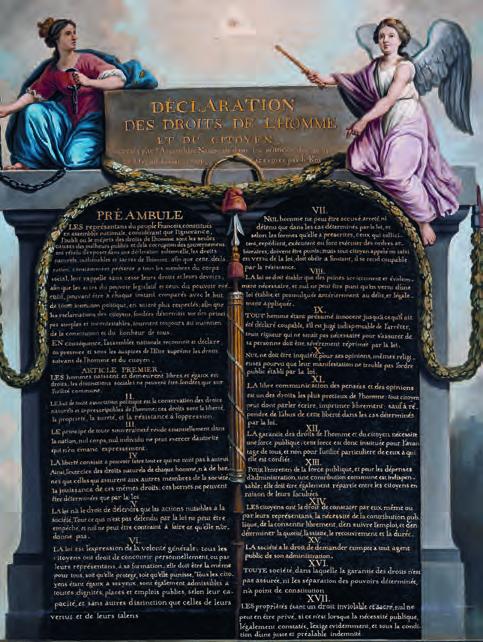 DÉCLARATION
DES DROITS DE L'HOMME
ET DU CITOYEN
PRÉAMBULE
LES représentans du peuple François, constitués
en assemblée nationale, considérant que l'ignorance,
l'oubli ou le mépris des droits de l'homme sont les seules
causes des malheurs publics et de la corruption des gouvernemens
ont résolu d'exposer dans une déclaration solemnelle, les droits
naturels, inaliénables et sacrés de l'homme; afin que cette décla-
ration, constamment présente à tous les membres du corps
social, leur rappelle sans cesse leurs droits et leurs devoirs;
afin que les actes du pouvoir législatif et ceux du pouvoir exé-
cutif, pouvant être à chaque instant comparés avec le but
de toute institution politique, en soient plus respectés; afin que
les réclamations des citoyens, fondées désormais sur des princi-
pes simples et incontestables, tournent toujours au maintien
de la constitution et du bonheur de tous.
EN conséquence, l'assemblée nationale reconnoît et déclare
en présence et sous les auspices de l'Être suprême les droits
suivans de l'homme et du citoyen.
ARTICLE PREMIER.
LES hommes naissent et demeurent libres et égaux en
droits. les distinctions sociales ne peuvent être fondées que sur
l'utilité commune.
II.
LE but de toute association politique est la conservation des droits
naturels et imprescriptibles de l'homme; ces droits sont la liberté,
la propriété, la sureté, et la résistance à l'oppression.
III.
LE principe de toute souveraineté réside essentiellement dans
la nation, nul corps, nul individu ne peut exercer d'autorité
qui n'en émane expressement.
IV.
LA liberté consiste à pouvoir faire tout ce qui ne nuit pas à autrui
Ainsi, l'exercice des droits naturels de chaque homme, n'a de bor-
nes que celles qui assurent aux autres membres de la société
la jouissance de ces mêmes droits; ces bornes ne peuvent
être déterminées que par la loi
V.
LA loi n'a le droit de défendre que les actions nuisibles à la
société. Tout ce qui n'est pas défendu par la loi ne peut être
empêché, et nul ne peut être contraint à faire ce qu'elle n'or-
donne pas.
VI.
LA loi est l'expression de la volonté générale; tous les
citoyens ont droit de concourir personnellement, ou par
leurs représentans, à sa formation; elle doit être la même
pour tous, soit qu'elle protége, soit qu'elle punisse. Tous les cito-
yens étant égaux à ses yeux, sont également admissibles à
toutes dignités, places et emplois publics, selon leur ca-
pacité, et sans autres distinctions que celles de leurs
vertus et de leurs talens
VII.
NUL homme ne peut être accusé, arreté ni
détenu que dans les cas déterminés par la loi, et
selon les formes qu'elle a prescrites. ceux qui sollici-
tent, expédient, exécutent ou font exécuter des ordres ar-
bitraires, doivent être punis; mais tout citoyen appelé ou saisi
en vertu de la loi, doit obéir à l'instant, il se rend coupable
par la résistance.
VIII.
LA loi ne doit établir que des peines strictement et évidem-
ment nécessaire, et nul ne peut être puni qu'en vertu d'une
loi établie et promulguée antérieurement au délit, et légale-
ment appliquée.
IX.
TOUT homme étant présumé innocent jusqu'à ce qu'il ait
été déclaré coupable, s'il est jugé indispensable de l'arrêter,
toute rigueur qui ne serait pas nécessaire pour s'assurer de
sa personne doit être sévèrement réprimée par la loi.
X.
NUL ne doit être inquiété pour ses opinions, mêmes religi-
euses pourvu que leur manifestation ne trouble pas l'ordre
public établi par la loi.
XI.
LA libre communication des pensées et des opinions
est un des droits les plus precieux de l'homme; tout citoyen
peut donc parler écrire, imprimer librement; sauf à ré-
pondre de l'abus de cette liberté dans les cas déterminés
par la loi.
XII.
LA garantie des droits de l'homme et du citoyen nécessite
une force publique; cette force est donc instituée pour l'avan-
tage de tous, et non pour l'utilité particuliere de ceux à qui
elle est confiée.
XIII.
POUR l'entretien de la force publique, et pour les dépenses
d'administration, une contribution commune est indispen-
sable; elle doit être également répartie entre les citoyens en
raison de leurs facultées.
XIV.
LES citoyens ont le droit de constater par eux même ou
par leurs représentans, la nécessité de la contribution pub-
lique, de la consentir librement, d'en suivre l'emploi, et d'en
déterminer la quotité, l'assiette, le recouvrement et la durée.
XV.
LA société a le droit de demander compte à tout agent
public de son administration.
XVI.
TOUTE société, dans laquelle la garantie des droits n'est
pas assurée, ni les séparation des pouvoirs déterminée,
n'a point de constitution.
XVII.
LES propriétés étant un droit inviolable et sacré, nul ne
peut en être privé, si ce n'est lorsque la nécessité publique,
légalement constatée, l'exige évidemment, et sous la condi-
tion d'une juste et préalable indemnité